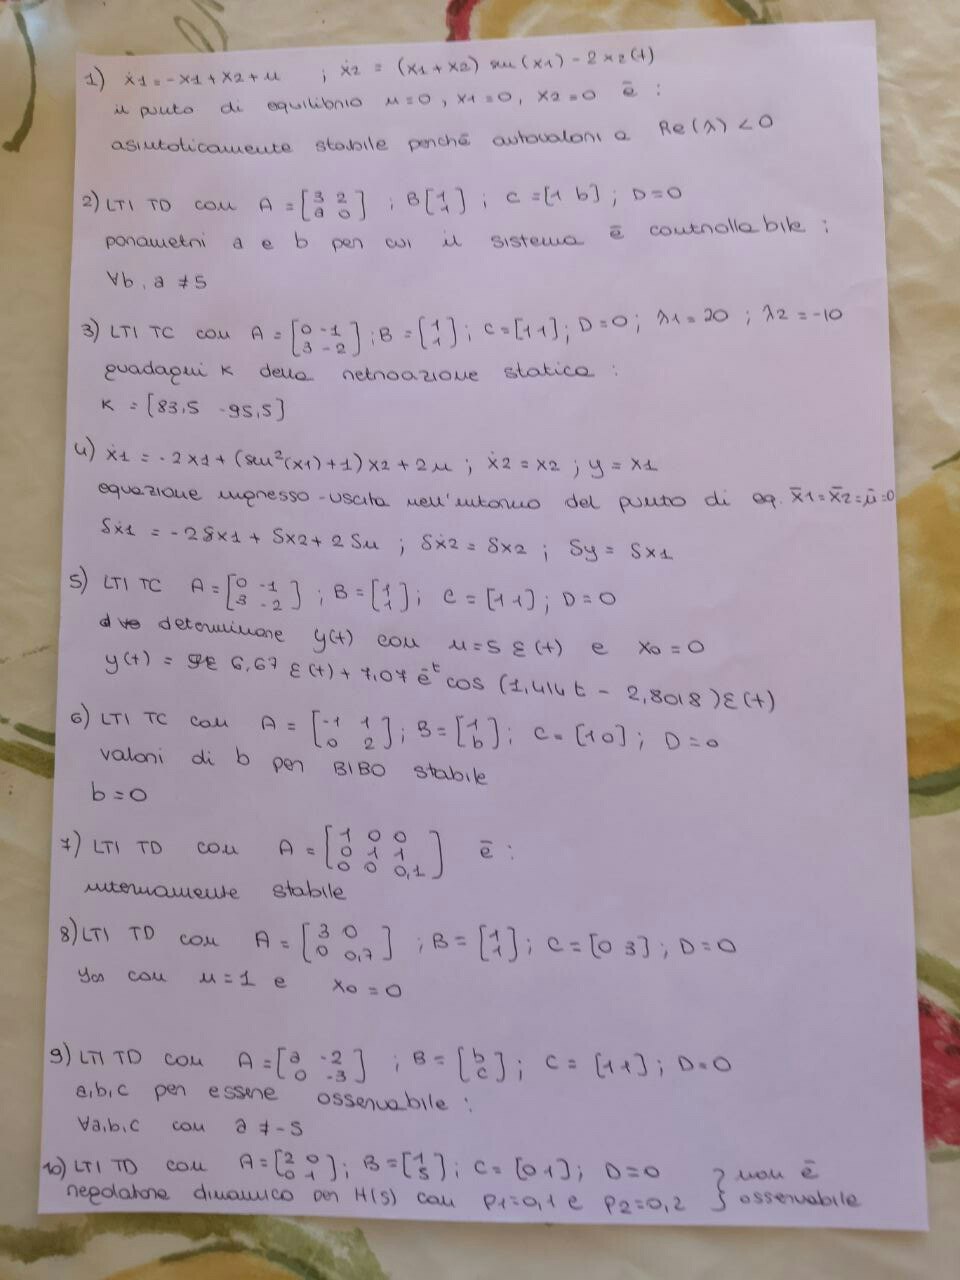 1) ẋ1 = -x1 + x2 + u ; ẋ2 = (x1 + x2) sen(x1) - 2x2(t)
il punto di equilibrio u=0, x1=0, x2=0 è :
asintoticamente stabile perché autovalori a Re(λ) < 0
2) LTI TD con A = [3 2; a 0] ; B[1; 1] ; C = [1 b] ; D=0
parametri a e b per cui il sistema è controllabile :
∀b, a ≠ 5
3) LTI TC con A = [0 -1; 3 -2] ; B = [1; 1] ; C = [1 1] ; D=0 ; λ1 = 20 ; λ2 = -10
guadagni K della retroazione statica :
K = [83,5 -95,5]
4) ẋ1 = -2x1 + (sen²(x1)+1)x2 + 2u ; ẋ2 = x2 ; y = x1
equazione ingresso-uscita nell'intorno del punto di eq. x̄1=x̄2=ū=0
δẋ1 = -2δx1 + δx2 + 2δu ; δẋ2 = δx2 ; δy = δx1
5) LTI TC A = [0 -1; 3 -2] ; B = [1; 1] ; C = [1 1] ; D=0
determinare y(t) con u=5 ε(t) e x0=0
y(t) = 6,67 ε(t) + 7,07 e^-t cos (1,414t - 2,8018) ε(t)
6) LTI TC con A = [-1 1; 0 2] ; B = [1; b] ; C = [1 0] ; D=0
valori di b per BIBO stabile
b=0
7) LTI TD con A = [1 0 0; 0 1 1; 0 0 0,1] è :
internamente stabile
8) LTI TD con A = [3 0; 0 0,7] ; B = [1; 1] ; C = [0 3] ; D=0
y∞ con u=1 e x0=0
9) LTI TD con A = [a -2; 0 -3] ; B = [b; c] ; C = [1 1] ; D=0
a,b,c per essere osservabile :
∀a,b,c con a ≠ -5
10) LTI TD con A = [2 0; 0 1] ; B = [1; 5] ; C = [0 1] ; D=0 } non è
regolatore dinamico per H(s) con p1=0,1 e p2=0,2 } osservabile